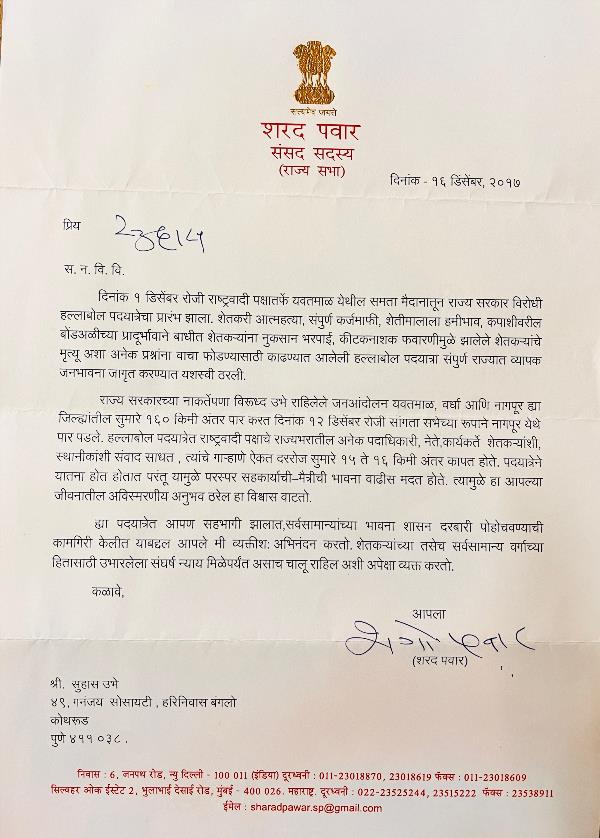 सत्यमेव जयते
शरद पवार
संसद सदस्य
(राज्य सभा)
दिनांक - १६ डिसेंबर, २०१७
प्रिय सुहास
स. न. वि. वि.
दिनांक १ डिसेंबर रोजी राष्ट्रवादी पक्षातर्फे यवतमाळ येथील समता मैदानातून राज्य सरकार विरोधी
हल्लाबोल पदयात्रेचा प्रारंभ झाला. शेतकरी आत्महत्या, संपुर्ण कर्जमाफी, शेतीमालाला हमीभाव, कपाशीवरील
बोंडअळीच्या प्रादूर्भावाने बाधीत शेतकऱ्यांना नुकसान भरपाई, कीटकनाशक फवारणीमुळे झालेले शेतकऱ्यांचे
मृत्यू अशा अनेक प्रश्नांना वाचा फोडण्यासाठी काढण्यात आलेली हल्लाबोल पदयात्रा संपुर्ण राज्यात व्यापक
जनभावना जागृत करण्यात यशस्वी ठरली.
राज्य सरकारच्या नाकर्तेपणा विरूध्द उभे राहिलेले जनआंदोलन यवतमाळ, वर्धा आणि नागपूर ह्या
जिल्ह्यांतील सुमारे १६० किमी अंतर पार करत दिनांक १२ डिसेंबर रोजी सांगता सभेच्या रूपाने नागपूर येथे
पार पडले. हल्लाबोल पदयात्रेत राष्ट्रवादी पक्षाचे राज्यभरातील अनेक पदाधिकारी, नेते,कार्यकर्ते शेतकऱ्यांशी,
स्थानीकांशी संवाद साधत , त्यांचे गाऱ्हाणे ऐकत दररोज सुमारे १५ ते १६ किमी अंतर कापत होते. पदयात्रेने
यातना होत होतात परंतू यामुळे परस्पर सहकार्याची–मैत्रीची भावना वाढीस मदत होते. त्यामुळे हा आपल्या
जीवनातील अविस्मरणीय अनुभव ठरेल हा विश्वास वाटतो.
ह्या पदयात्रेत आपण सहभागी झालात,सर्वसामान्यांच्या भावना शासन दरबारी पोहोचवण्याची
कामगिरी केलीत याबद्दल आपले मी व्यक्तीश: अभिनंदन करतो. शेतकऱ्यांच्या तसेच सर्वसामान्य वर्गाच्या
हितासाठी उभारलेला संघर्ष न्याय मिळेपर्यंत असाच चालू राहिल अशी अपेक्षा व्यक्त करतो.
कळावे,
आपला
(शरद पवार)
श्री. सुहास उभे
४९, गनंजय सोसायटी , हरिनिवास बंगलो
कोथरूड
पुणे ४११ ०३८ .
निवास : 6, जनपथ रोड, न्यु दिल्ली - 100 011 (इंडिया) दूरध्वनी : 011-23018870, 23018619 फॅक्स : 011-23018609
सिल्व्हर ओक ईस्टेट 2, भुलाभाई देसाई रोड, मुंबई - 400 026. महाराष्ट्र. दूरध्वनी : 022-23525244, 23515222 फॅक्स : 23538911
ईमेल : sharadpawar.sp@gmail.com